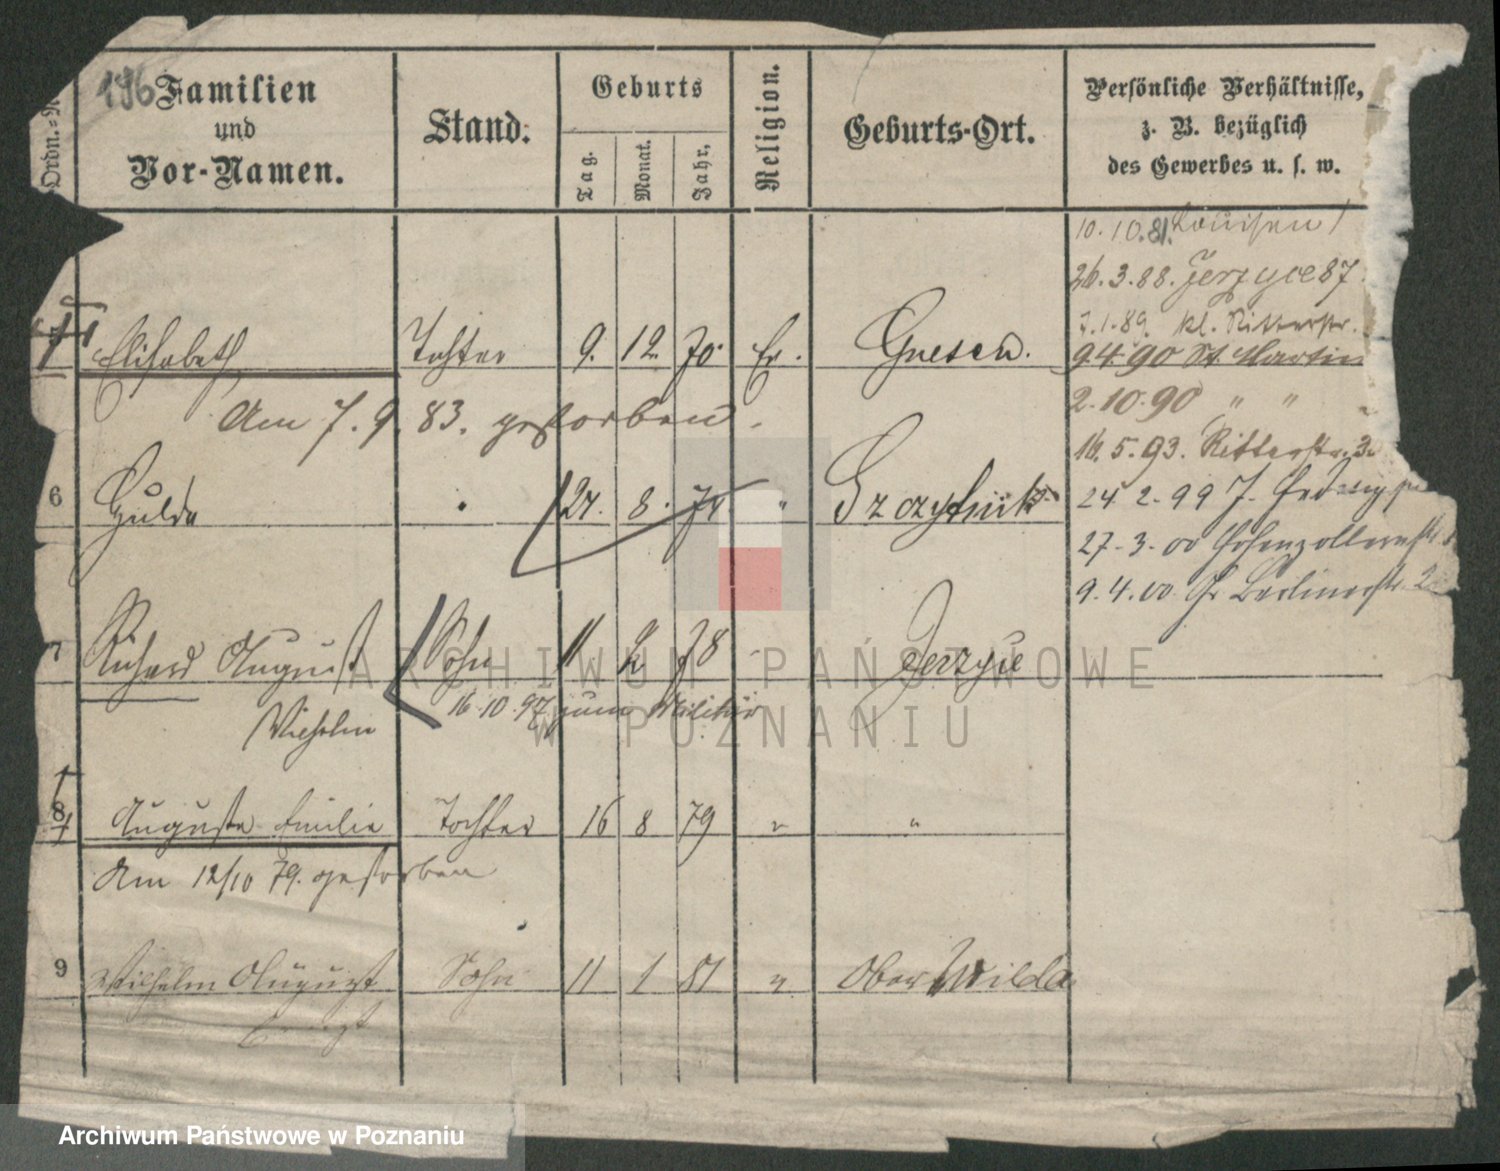 196
Ordn.-N
Familien
und
Vor-Namen.
Stand.
Geburts
Tag.
Monat.
Jahr.
Religion.
Geburts-Ort.
Persönliche Verhältnisse,
z. B. bezüglich
des Gewerbes u. s. w.
10.10.81. Louisen
26.3.88. Jerzyce 87.
7.1.89. kl. Ritterstr.
Elisabeth Tochter 9. 12. 70. Ev. Gnesen.
9.4.90 St. Martin
2.10.90 " "
Am 7.9.83. gestorben.
16.5.93. Ritterstr.
6 Hulda " 8.
24.2.99
27.3.00 Hohenzollernstr.
9.4.00 Gr Berlinerstr.
7 Richard August Sohn 11 2 78 Jerzyce
Wilhelm
16.10.97 zum Militär
8 Auguste Emilie Tochter 16 8 79 " "
Am 12/10 79. gestorben
9 Wilhelm August Sohn 11 1 81 " Ober Wilda
Ernst
ARCHIWUM PAŃSTWOWE
W POZNANIU
Archiwum Państwowe w Poznaniu